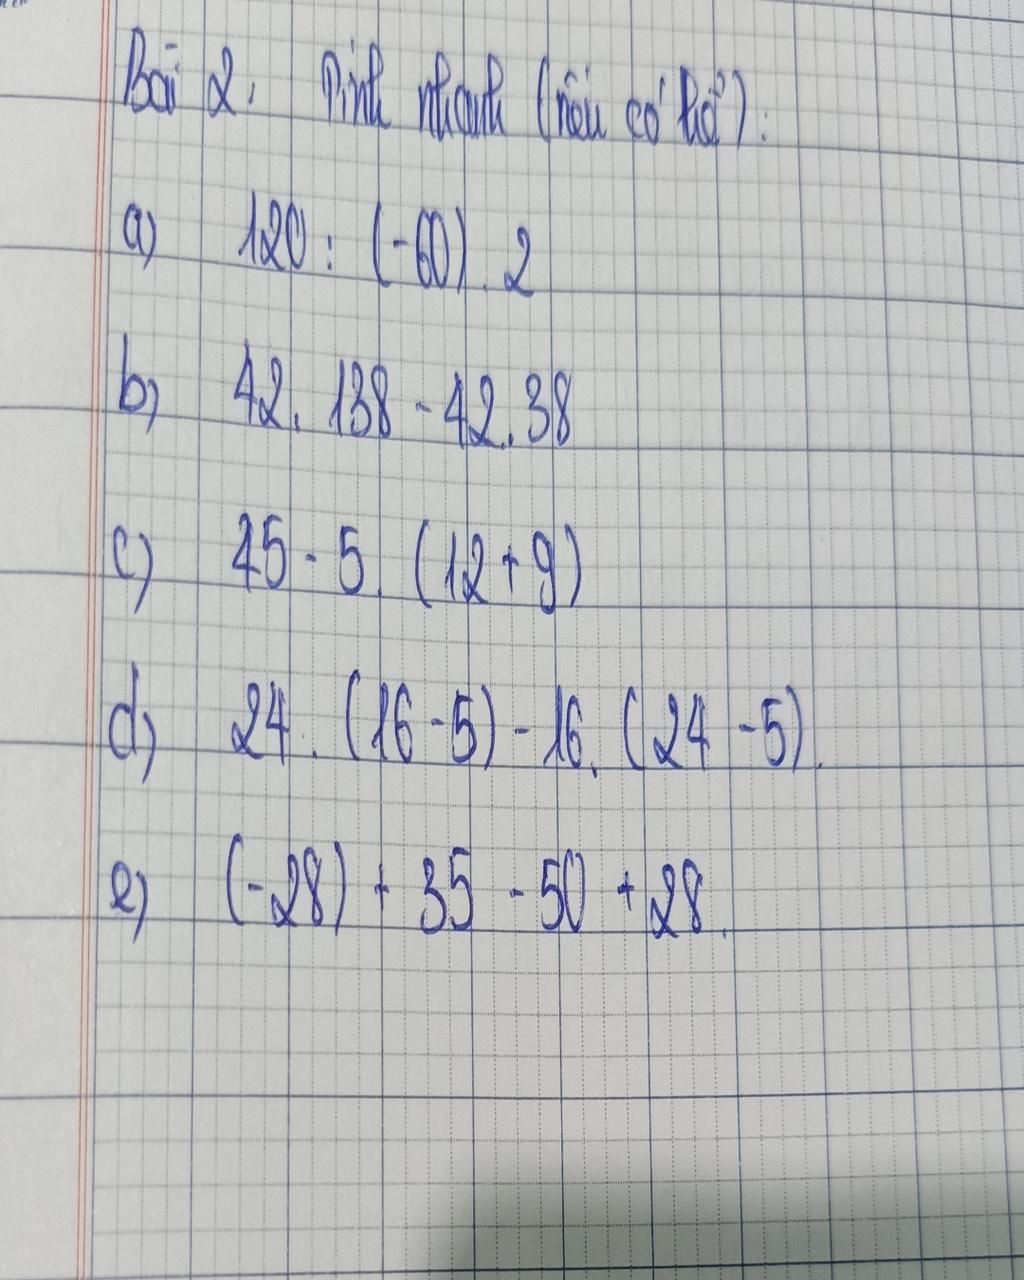 Bài 2. Tính nhanh (nếu có thể):
a) 120 : (-60) . 2
b) 42 . 138 - 42 . 38
c) 45 - 5 . (12 + 9)
d) 24 . (16 - 5) - 16 . (24 - 5).
e) (-28) + 35 - 50 + 28.